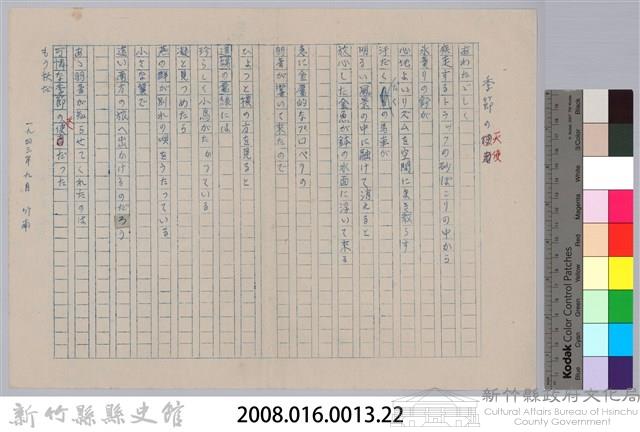 季節の使者
天使
あわたゞしく
疾走するトラックの砂ぼこりの中から
氷賣りの鈴が
心地よいリズムを空間にまき散らす
汗だくの馬車が
明るい風景の中に融けて消えると
放心した金魚が鉢の水面に浮いて來る
急に金属的なプロペラの
的音が響いて来たので
ひょっと横の方を見ると
道端の電線には
珍らしく小鳥がたかっている
凝と見つめたら
燕の群が別れの唄をうたっている
小さな翼で
遠い南方の旅へ出かけるのだろう
あゝ 弱者が知らせてくれたのは
可憐な季節の使者だった
天
もう秋だ
一九四三年九月
新竹縣縣史館
2008.016.0013.22
新竹縣政府文化局
Cultural Affairs Bureau of Hsinchu
County Government
Kodak Color Control Patches
Blue
Cyan
Green
Yellow
Red
Magenta
White
3/Color
Black